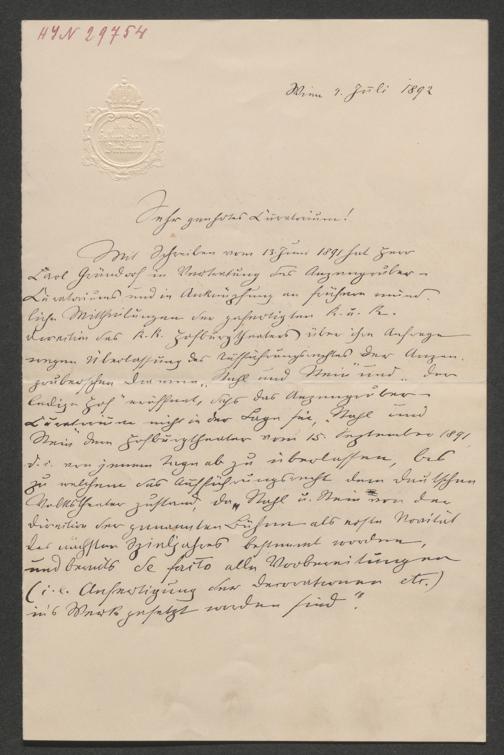 HIN 29754
Wien 9. Juli 1892
Sehr geehrtes Curatorium!
Mit Schreiben vom 13 Juni 1891 hat Herr
Carl Gründorf in Vertretung des Anzengruber-
Curatoriums und in Anknüpfung an frühere münd-
liche Mittheilungen der gefertigten k. u. k.
Direction des k. k. Hofburgtheaters über ihre Anfrage
wegen Überlassung des Aufführungsrechtes der Anzen-
gruberschen Dramen "Stahl und Stein" und "Der
ledige Hof" eröffnet, daß das Anzengruber-
Curatorium nicht in der Lage sei, "Stahl und
Stein" dem Hofburgtheater vom 15. September 1891,
d. i. von jenem Tage ab zu überlassen, bis
zu welchem das Aufführungsrecht dem deutschen
Volkstheater zustand, da "Stahl u. Stein" von der
Direction der genannten Bühne als erste Novität
des nächsten Spieljahres bestimmt worden,
und bereits de facto alle Vorbereitungen
(i. e. Anfertigung der Decorationen etc.)
in's Werk gesetzt worden sind".